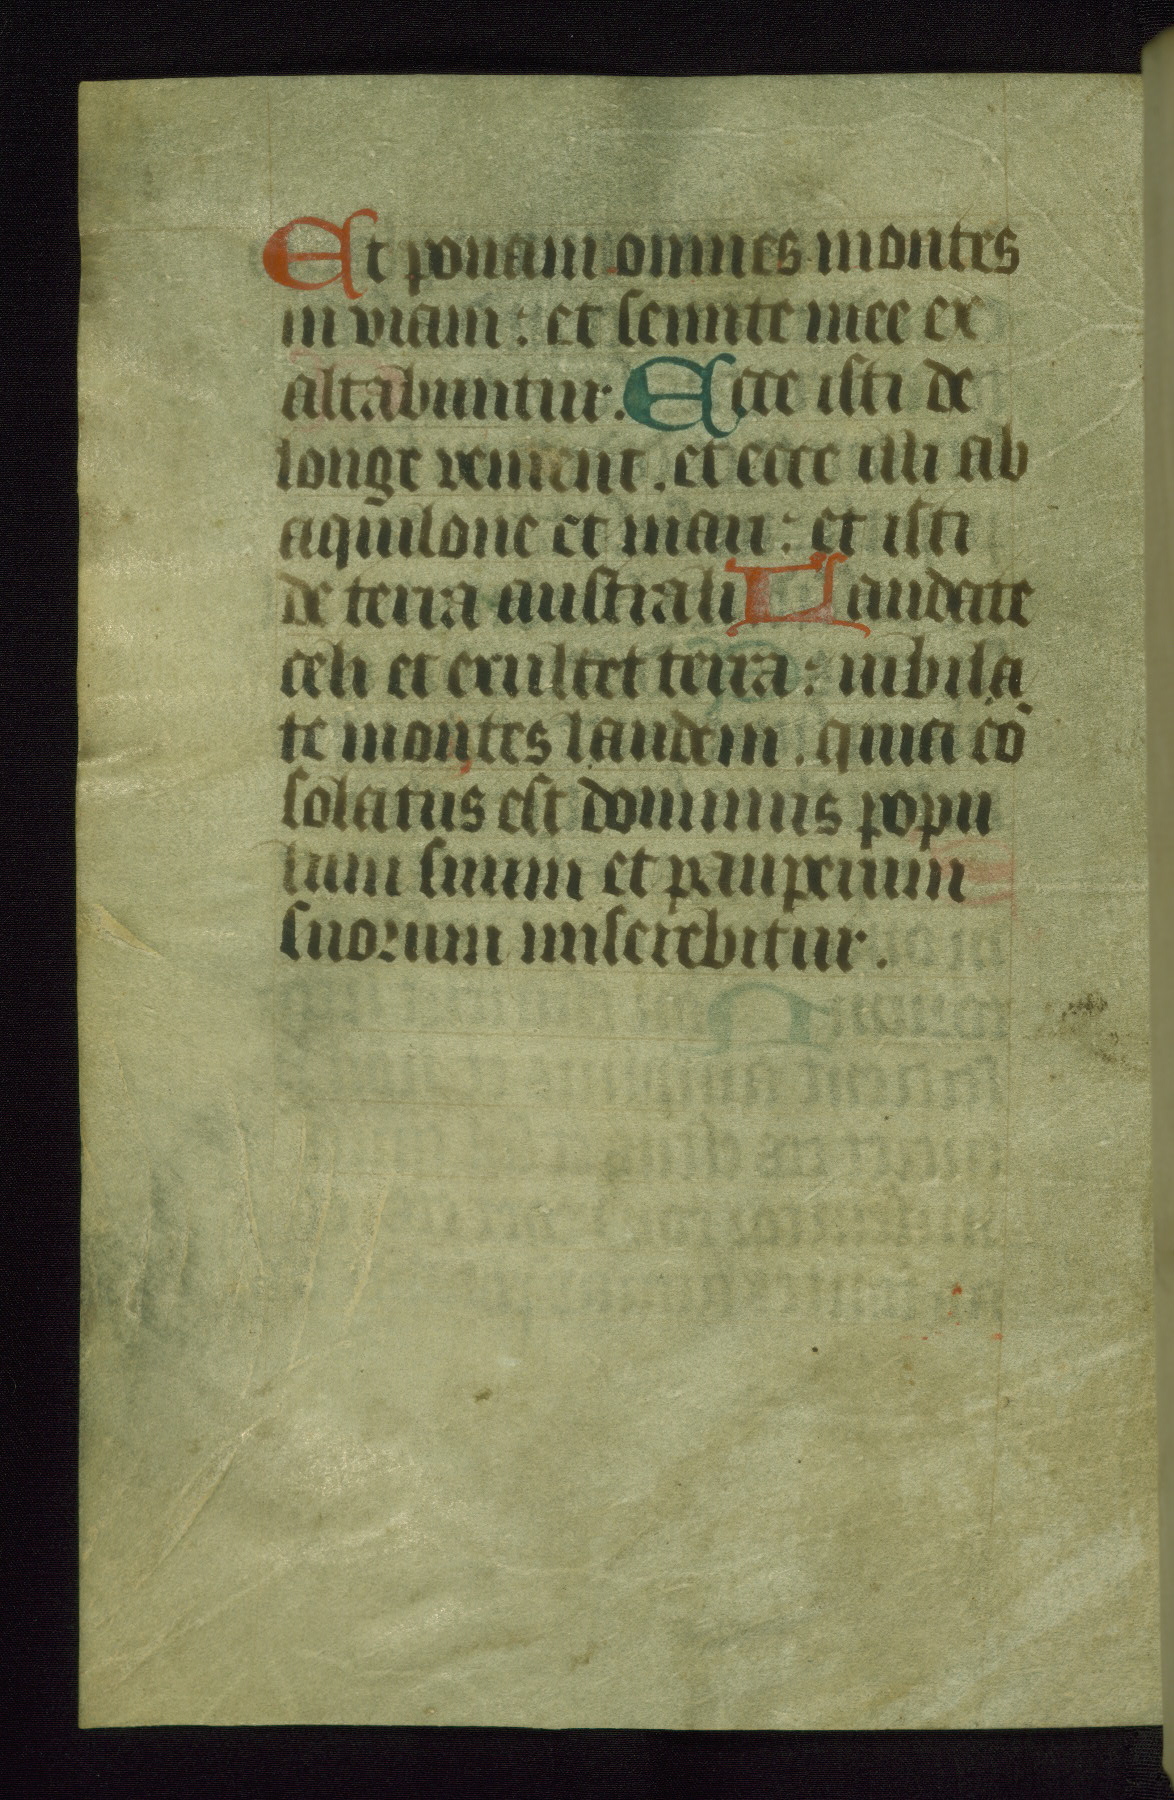 Et ponam omnes montes
in viam : et semite mee ex
altabuntur. Ecce isti de
longe venient . et ecce illi ab
aquilone et mari : et isti
de terra australi Laudate
celi et exultet terra : iubila
te montes laudem . quia cō
solatus est dominus popu
lum suum et pauperum
suorum miserebitur .